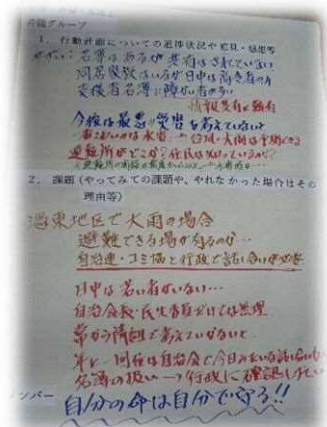 1. 行動計画についての進捗状況や意見・感想等
名簿はあるが共有はされていない
同居家族はいるが日中は高令者のみ
支援者名簿に障がい者が
情報共有が難有
今後は最悪の災害を考えていないと
避難所がどこか?住民は知っているか?
2. 課題(やってみての課題や、やれなかった場合はその
理由等)
東地区で大雨の場合
避難できる場が有るのか…
自治連・コミ協と行政で話し合いが必要
日中は若い者がいない…
自治会長・民生委員だけでは無理
常から隣組で考えていかないと
年に一回位は自治会で今日みたいな話し合い
名簿の扱い→行政に確認したい
自分の命は自分で守る!!